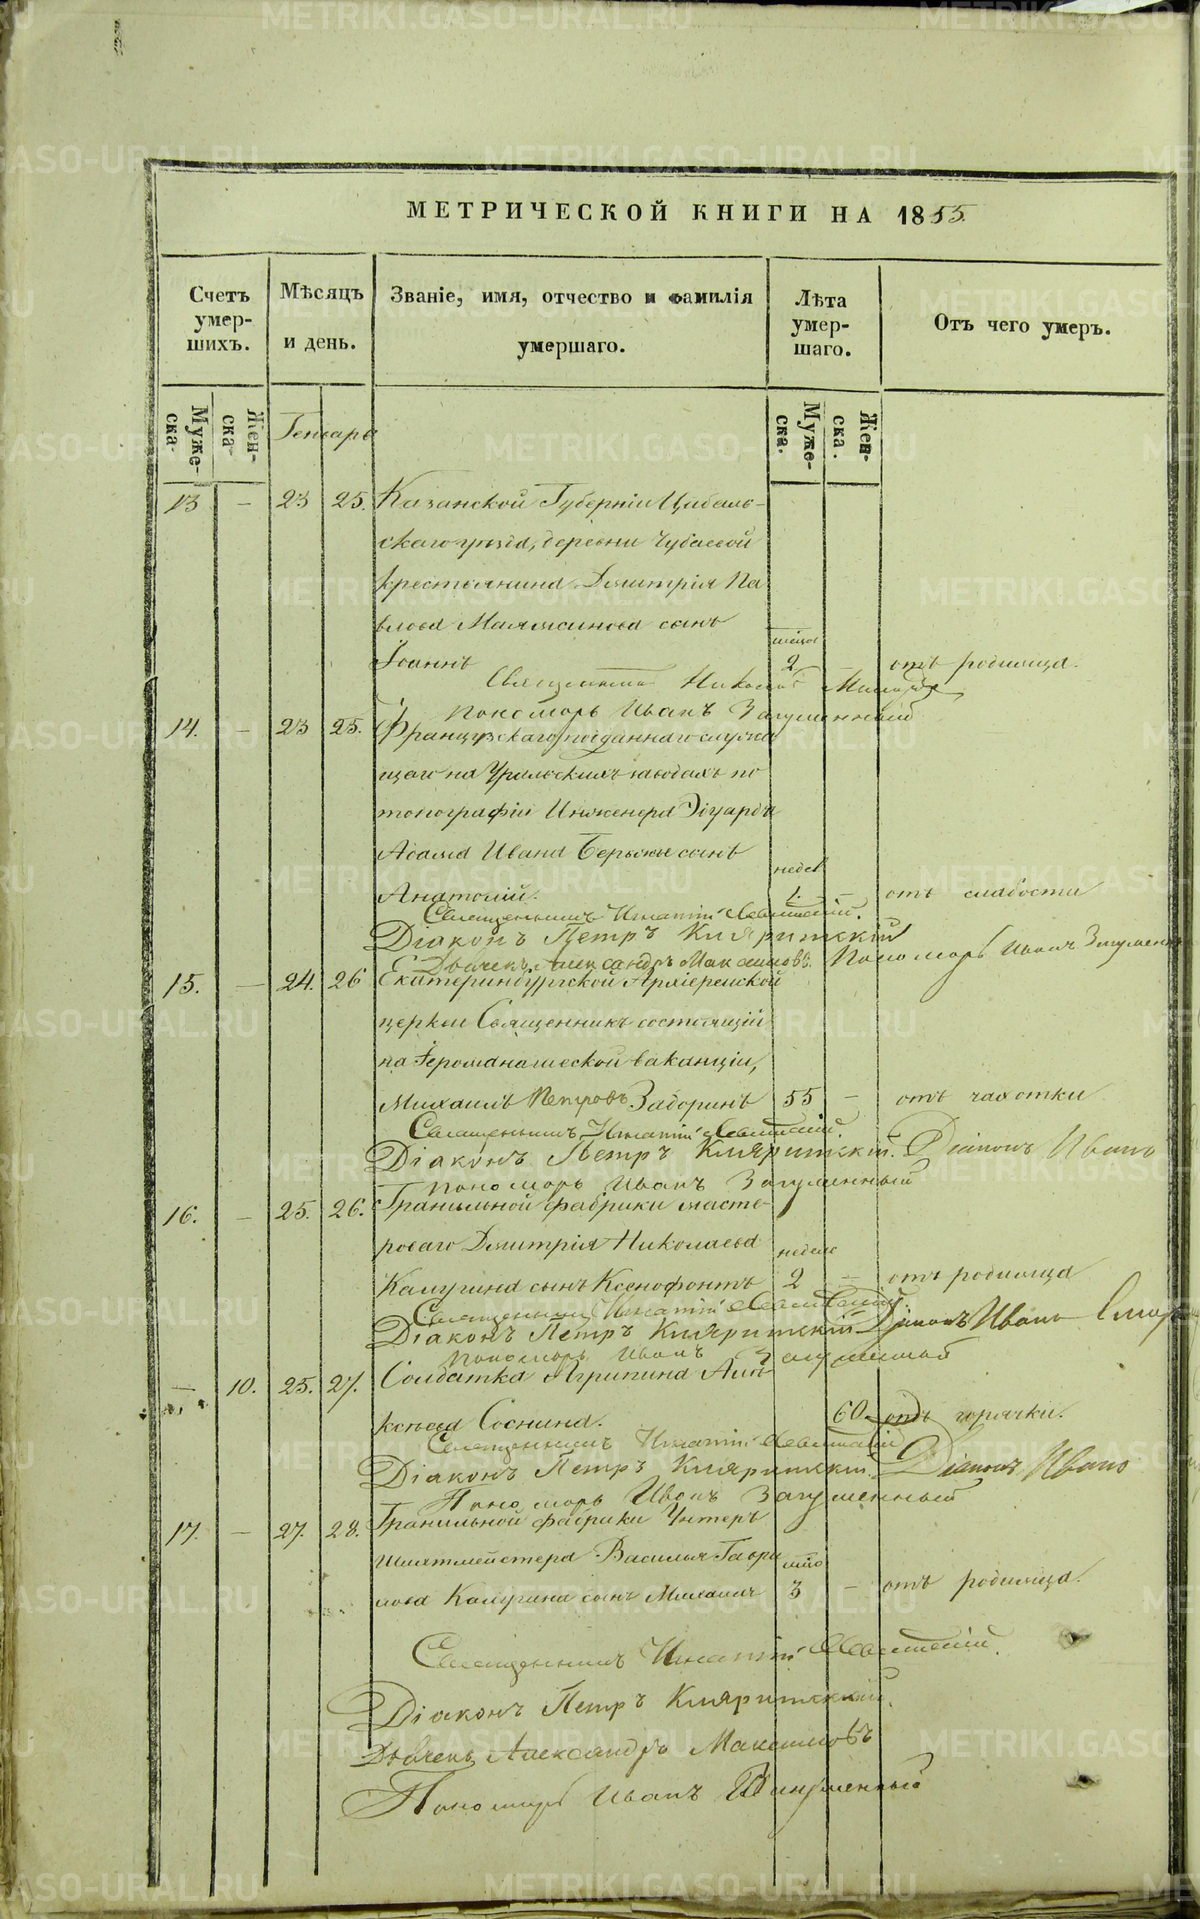 МЕТРИЧЕСКОЙ КНИГИ НА 1855.
Счетъ умер-шихъ.
Мѣсяцъ и день.
Званіе, имя, отчество и фамилія умершаго.
Лѣта умер-шаго.
Отъ чего умеръ.
Муже-ска. Жен-ска. Генварь Муже-ска. Жен-ска.
13 — 23 25. Казанской Губерніи Цивиль-
скаго уѣзда, деревни
крестьянина Дмитрія Па
влова сынъ
Іоаннъ 2 — отъ родимца.
Священникъ Николай
Пономарь Иванъ Загуменный
14. — 23 25. Французскаго подданнаго служа
щаго на Уральскихъ заводахъ по
топографіи Инженера Эдуарда
Адама Ивана сынъ
недел
Анатолій. 1. — отъ слабости
Священникъ Игнатій Левитскій.
Діаконъ Петръ Кляритскій
Дьячекъ Александръ Максимовъ. Пономарь Иванъ Загуменный
15. — 24. 26 Екатеринбургской Архіерейской
церкви Священникъ состоящій
на Іеромонашеской ваканціи,
Михаилъ Петровъ Задоринъ 55 — отъ чахотки
Священникъ Игнатій Левитскій.
Діаконъ Петръ Кляритскій. Діаконъ Иванъ
Пономарь Иванъ Загуменный
16. — 25. 26. Гранильной фабрики масте-
роваго Дмитрія Николаева
недел
Калугина сынъ Ксенофонтъ 2 — отъ родимца
Священникъ Игнатій Левитскій
Діаконъ Петръ Кляритскій Діаконъ Иванъ
Пономарь Иванъ Загуменный
— 10. 25. 27. Солдатка Агрипина Але
ксѣева Соснина. 60 отъ горячки.
Священникъ Игнатій Левитскій
Діаконъ Петръ Кляритскій. Діаконъ Иванъ
Пономарь Иванъ Загуменный
17. — 27. 28. Гранильной фабрики Унтеръ
Шихтмейстера Василья Гаври
лова Калугина сынъ Михаилъ 3 — отъ родимца.
Священникъ Игнатій Левитскій.
Діаконъ Петръ Кляритскій.
Дьячекъ Александръ Максимовъ
Пономарь Иванъ Загуменный
METRIKI.GASO-URAL.RU